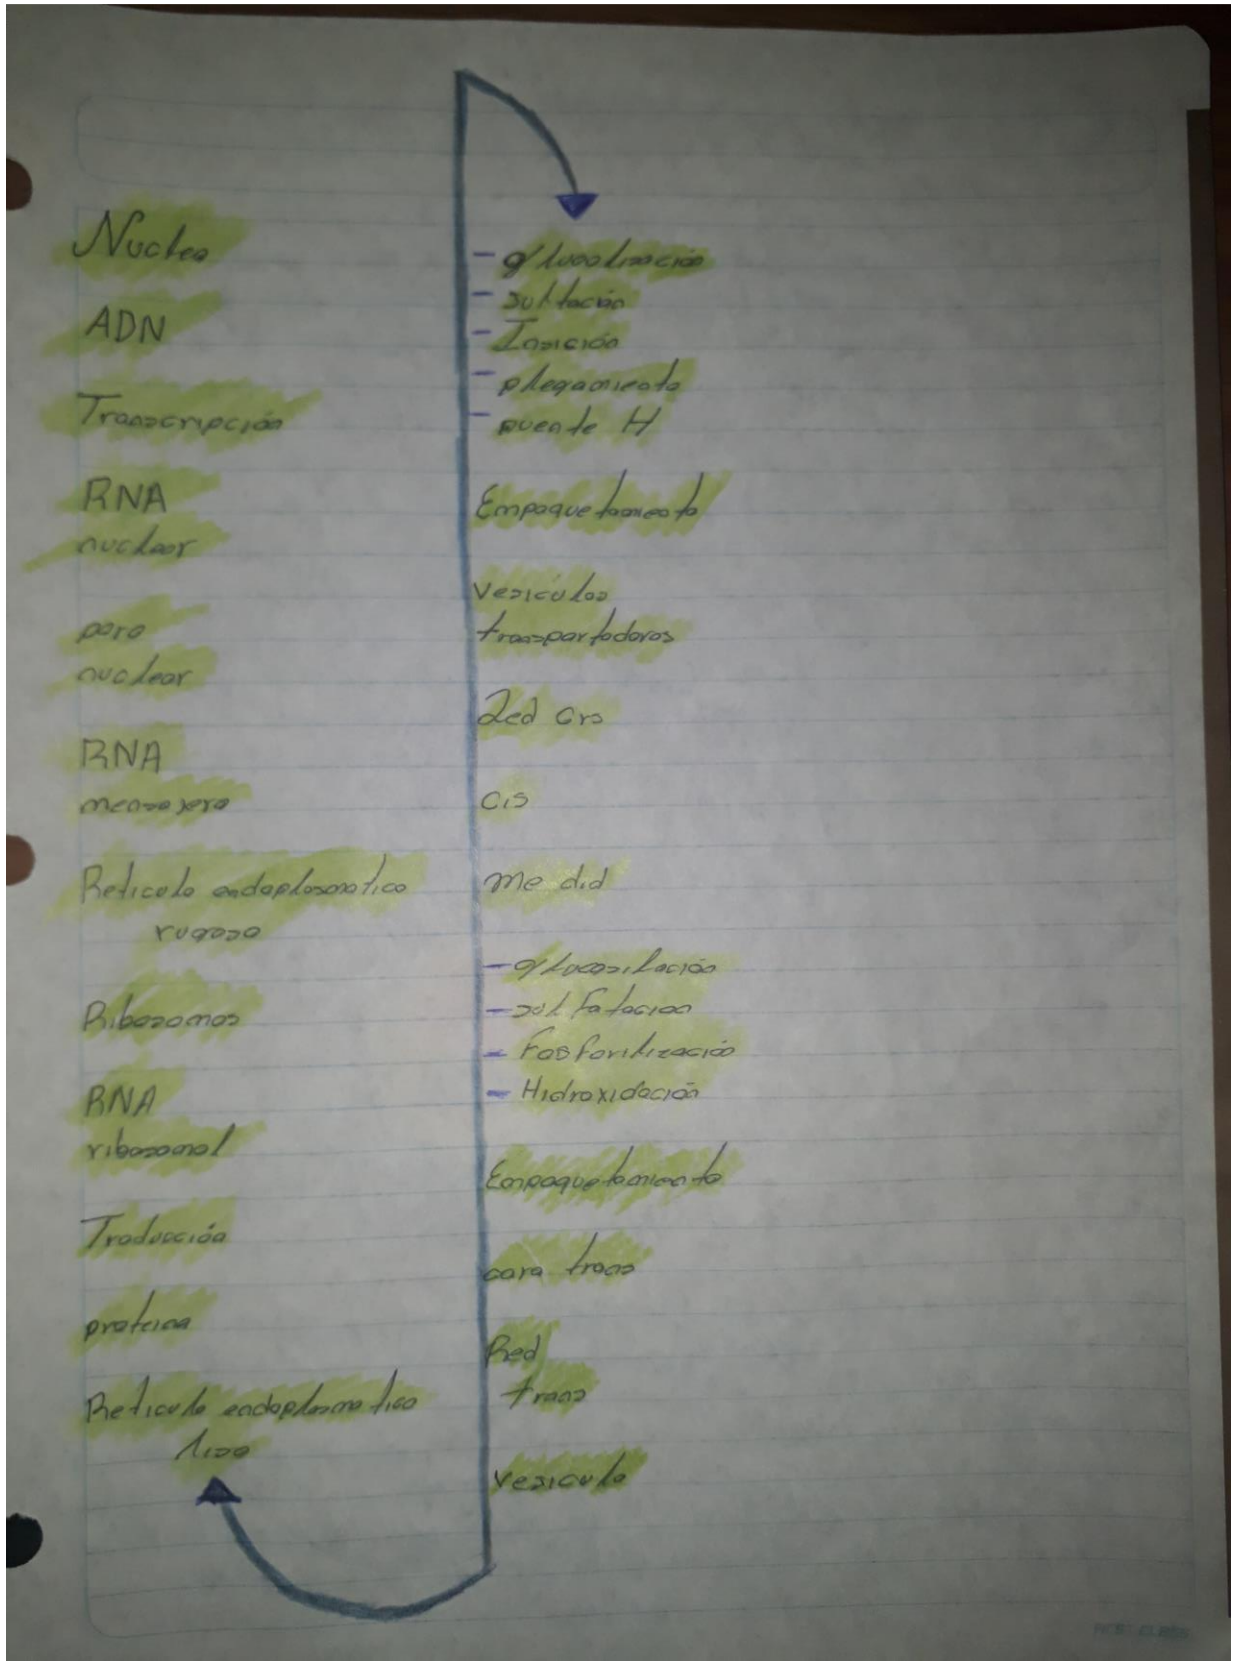 Nucleo
ADN
Transcripción
RNA
nuclear
poro
nuclear
RNA
mensajero
Reticulo endoplasmatico
rugoso
Ribosomas
RNA
ribosomal
Traducción
proteina
Reticulo endoplasmatico
liso
-
-
- Insición
- plegamiento
- puente H
Empaquetamiento
vesículas
transportadoras
Red cis
cis
Me did
- glucosilación
- sulfatacion
- Fosforilización
- Hidroxidación
Empaquetamiento
cara trans
Red
trans
vesicula